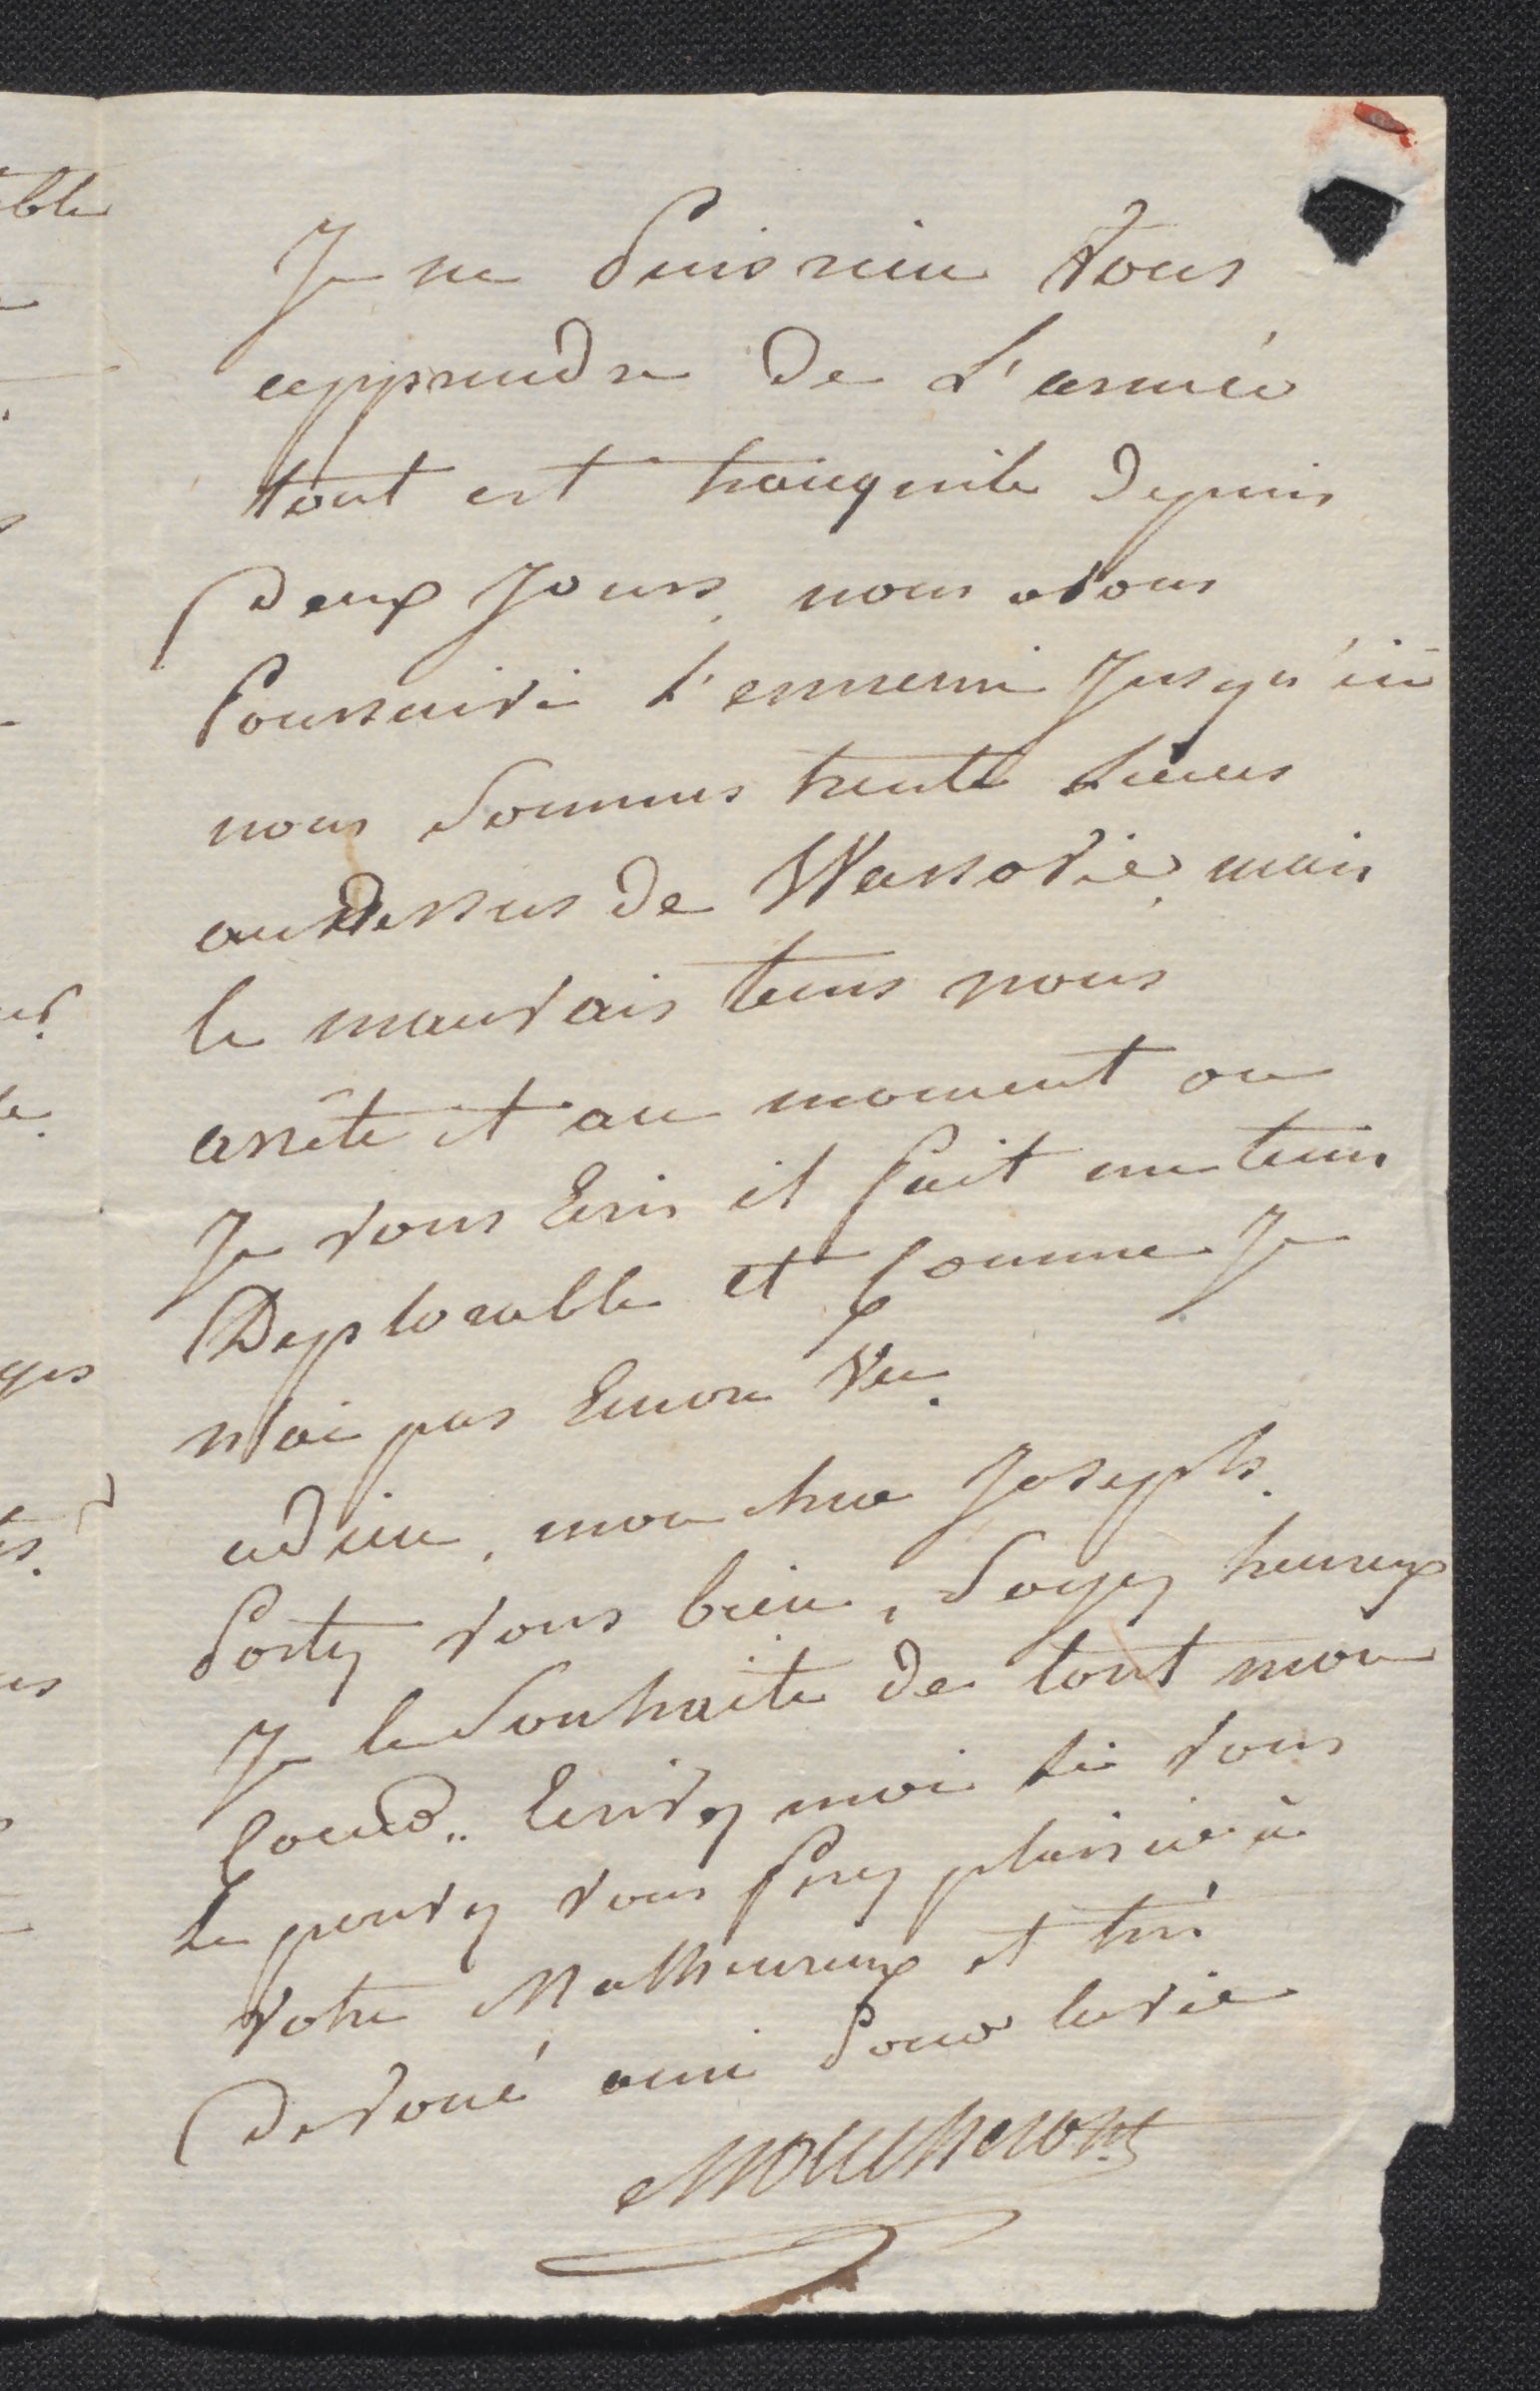 Je ne Puis rien Vous
apprendre De L'armée
tout est tranquile Depuis
Deux Jours, nous avons
Poursuivi L'ennemi Jusqu'ici
nous Sommes trente Lieues
audessus de Warsovie, mais
le mauvais tems nous
arrête et au moment ou
Je vous Ecris il fait un tems
Deplorable et Comme Je
n'ai pas Encore Vu.
adieu, mon cher Joseph.
Portez vous bien, Soyez heureux
Je le Souhaite De tout mon
Coeur.. Ecrivez moi Si vous
Le pouvez vous ferez plaisir à
votre Malheureux et très
Devoué ami Pour la vie